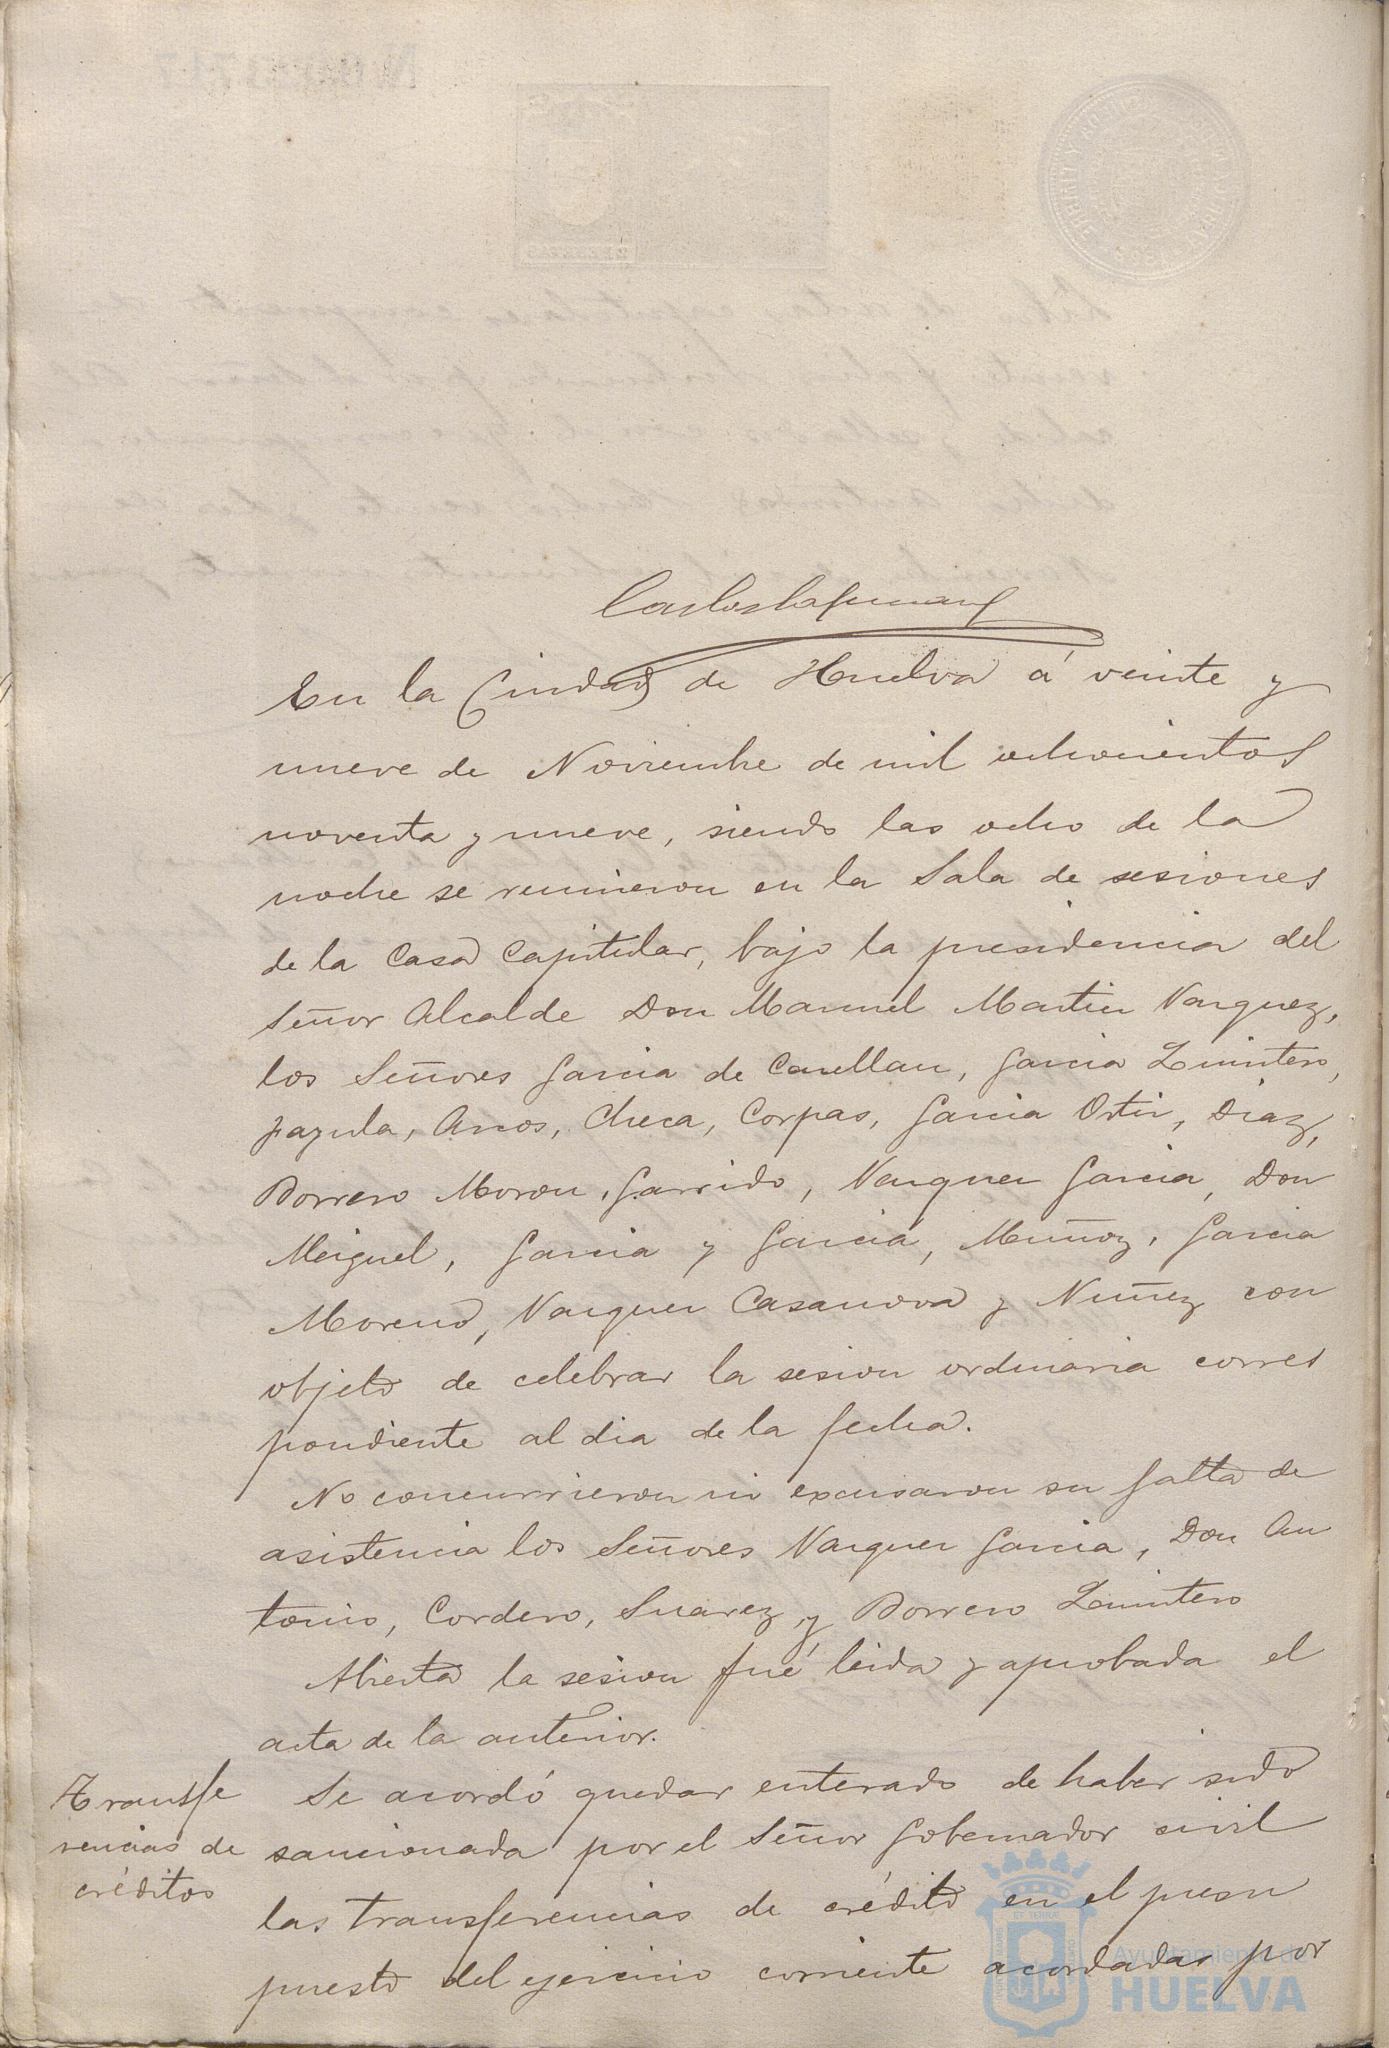 En la Ciudad de Huelva á veinte y
nueve de Noviembre de mil ochocientos
noventa y nueve, siendo las ocho de la
noche se reunieron en la Sala de sesiones
de la Casa Capitular, bajo la presidencia del
Señor Alcalde Don Manuel Martin Vazquez,
los Señores Garcia de Carellan, Garcia Quintero,
Jazula, Arcos, Checa, Corpas, Garcia Ortiz, Diaz,
Borrero Moron, Garrido, Vazquez Garcia, Don
Miguel, Garcia y Garcia, Muñoz, Garcia
Moreno, Vazquez Casanova y Nuñez con
objeto de celebrar la sesion ordinaria corres
pondiente al dia de la fecha.
No concurrieron ni excusaron su falta de
asistencia los Señores Vazquez Garcia, Don An
tonio, Cordero, Suarez, y Borrero Quintero
Abierta la sesion fué leida y aprobada el
acta de la anterior.
Transfe
rencias de
créditos
Se acordó quedar enterado de haber sido
sancionada por el Señor Gobernador civil
las transferencias de crédito en el presu
puesto del ejercicio corriente acordadas por
Ayuntamiento de
HUELVA